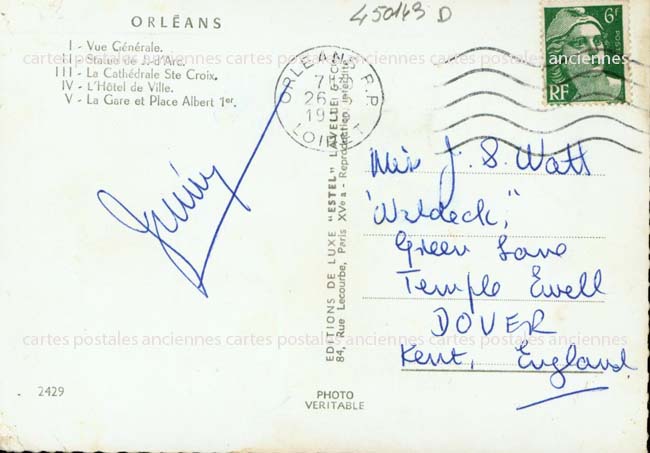 ORLÉANS
I - Vue Générale.
II - Statue de J. d'Arc.
III - La Cathédrale Ste Croix.
IV - L'Hôtel de Ville.
V - La Gare et Place Albert 1er.
450163 D
6F
POSTES
RF
ORLEANS R.P.
26
19
LOIRET
EDITIONS DE LUXE "ESTEL" LAVELLE & Cie
84, Rue Lecourbe, Paris XVe - Reproduction interdite
Miss J. S. Watt
"Waldeck,"
Green Lane
Temple Ewell
DOVER
Kent, England
cartes postales anciennes cartes postales anciennes cartes postales anciennes
cartes postales anciennes cartes postales anciennes cartes postales anciennes
2429
PHOTO
VERITABLE